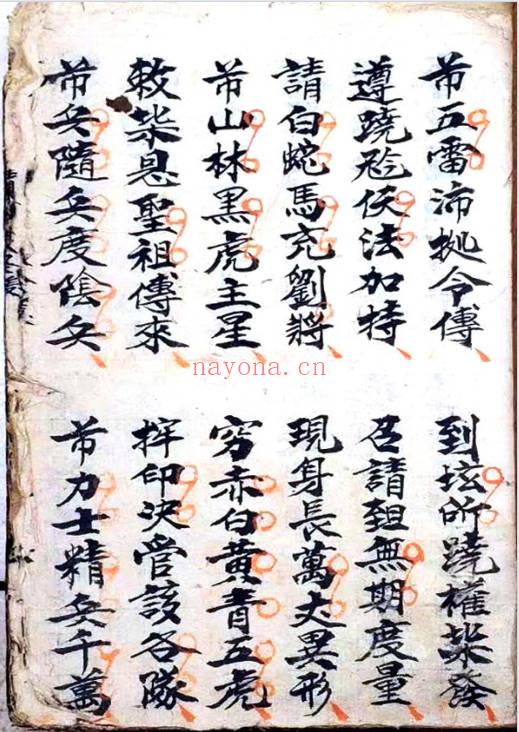 五雷沛令傳
到坛所蹺權柴發
遵蹺法加特
召請無期度量
請白蛇馬充劉將
現身長萬丈異形
山林黑虎主星
穷赤白黄青五虎
敕柴恩聖祖傳來
捽印决管該各隊
兵隨兵度陰兵
力士精兵千萬
nayona.cn